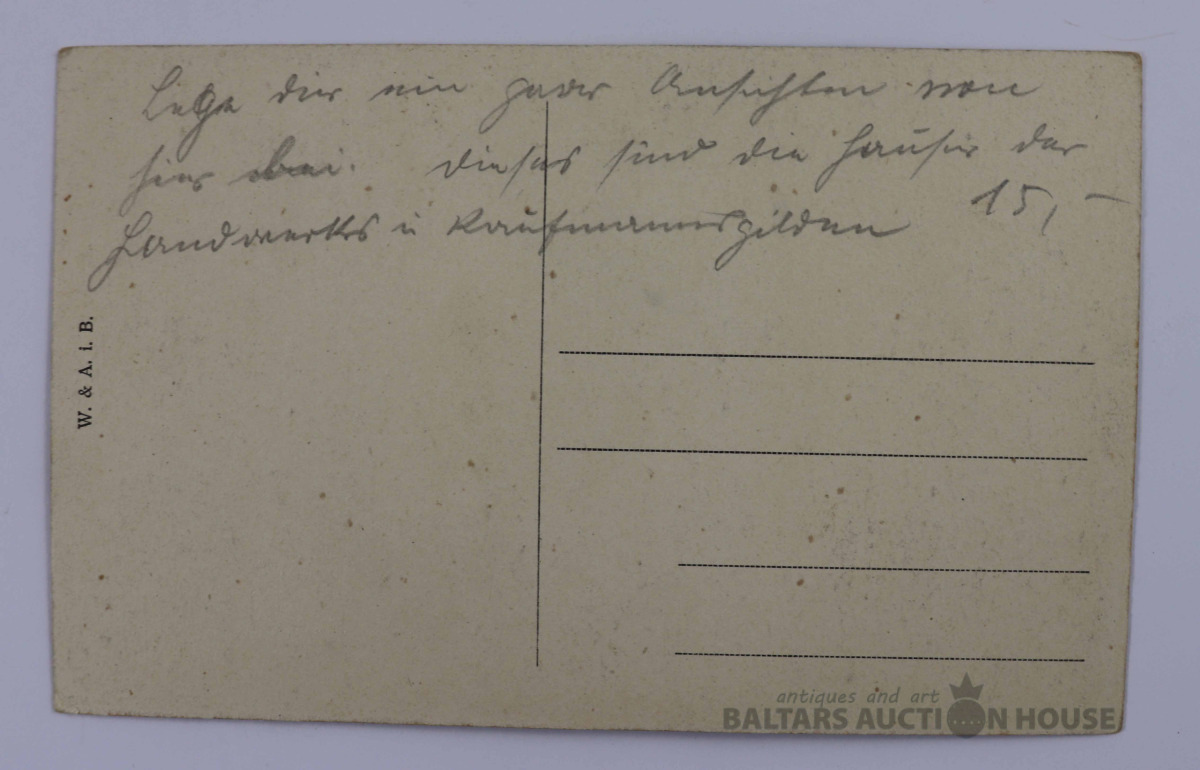 Lege dir ein paar Ansichten von
hier bei. Dieses sind die Häuser der
Handwerks u Kaufmannsgilden
15,-
W. & A. i. B.
antiques and art
BALTARS AUCTION HOUSE